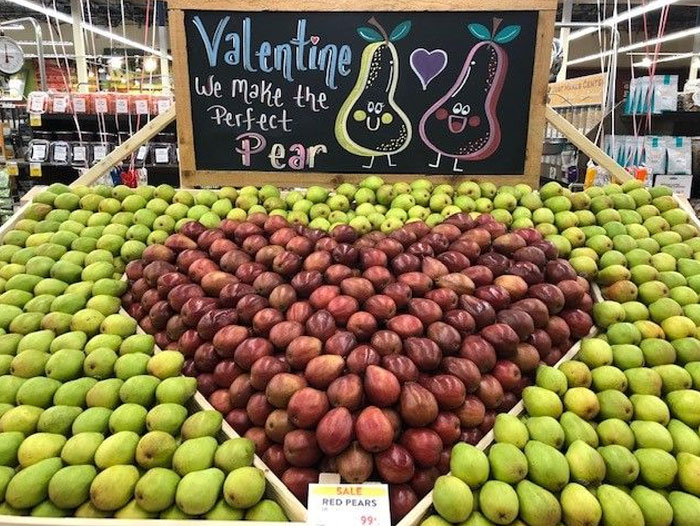 Valentine
We make the
Perfect
Pear
SALE
RED PEARS
99¢